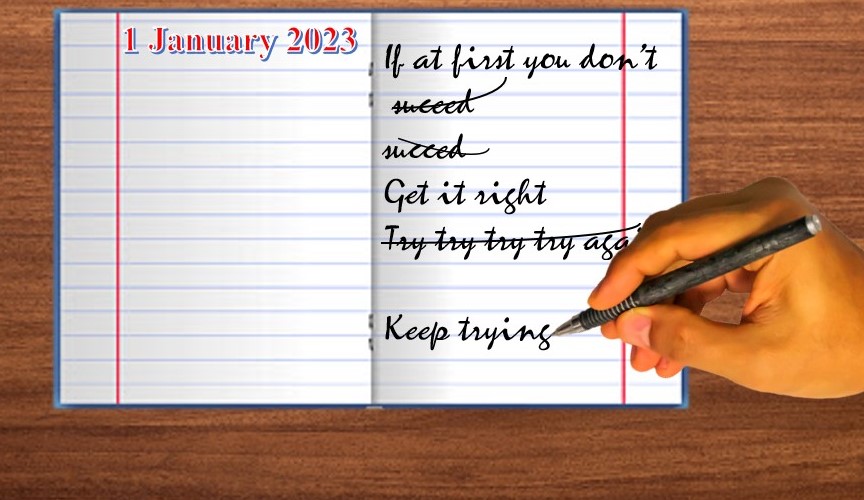 1 January 2023
If at first you don't
suceed
succed
Get it right
Try try try try
Keep trying